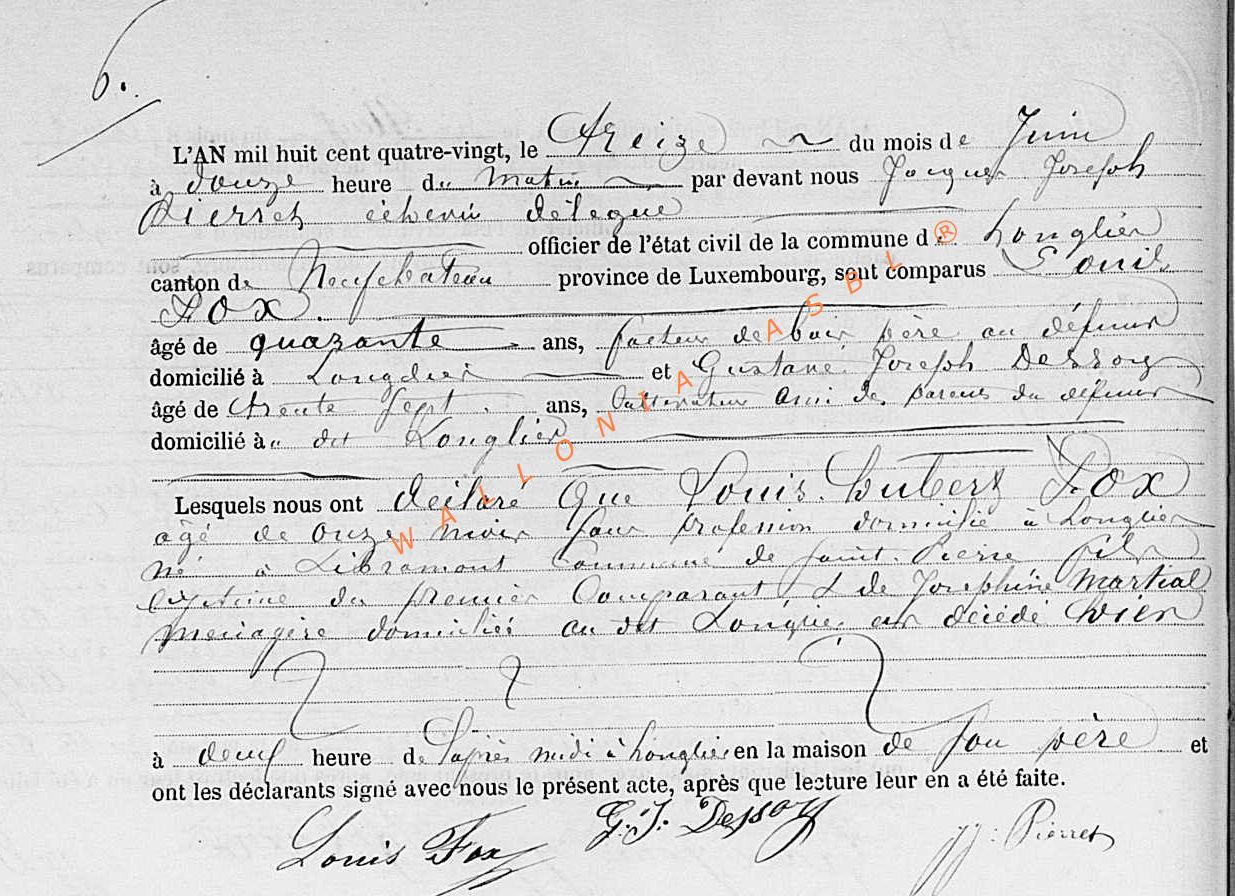 6.
L'AN mil huit cent quatre-vingt, le treize du mois de Juin
à douze heure du matin par devant nous Jacques Joseph
Pierret échevin délégué
officier de l'état civil de la commune d Longlier
canton de Neufchateau province de Luxembourg, sont comparus Louis
Fox.
âgé de quarante ans, facteur de bois père au défunt
domicilié à Longlier et Gustave Joseph Dessoy
âgé de trente sept ans, ami des parents du défunt
domicilié à dit Longlier
Lesquels nous ont déclaré que Louis Hubert Fox
âgé de onze mois sans profession domicilié à Longlier
né à Libramont Commune de Saint Pierre fils
légitime du premier Comparant & de Joséphine Martial
ménagère domiciliés au dit Longlier est décédé hier
à deux heure de l'après midi à Longlier en la maison de son père et
ont les déclarants signé avec nous le présent acte, après que lecture leur en a été faite.
Louis Fox G. J. Dessoy J J: Pierret
WALLONIA ASBL ®